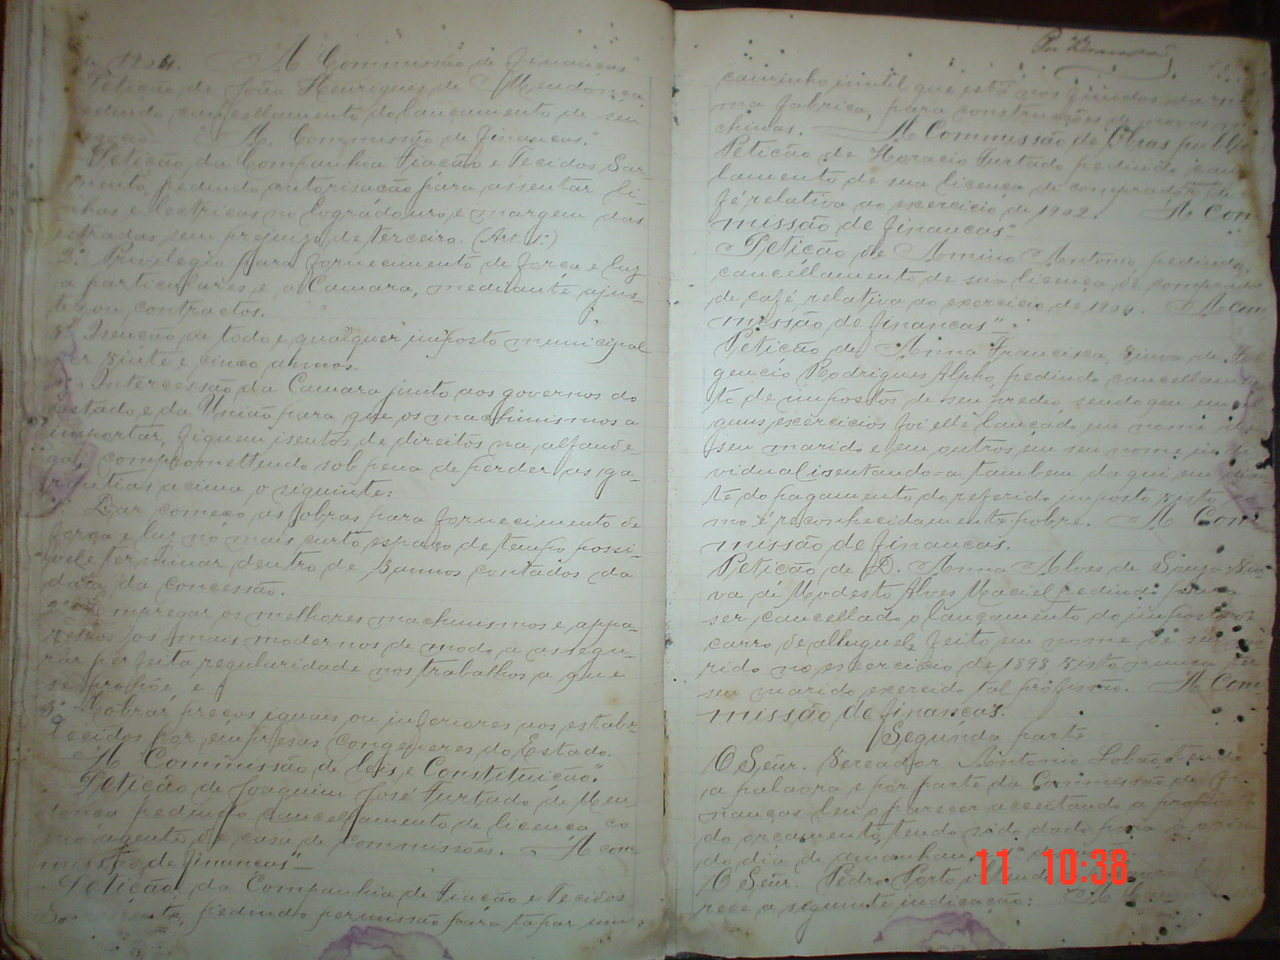 1904. "A Commissão de Finanças"
Petição de João Henriques de Mendonça
cancellamento do lançamento de seu
"A Commissão de Finanças."
Petição da Companhia Fiação e Tecidos Sar-
mento, pedindo autorisação para assentar li-
nhas electricas no logradouro e margem das
estradas sem prejuizo de terceiro. (Art. 1º)
2º Privilegio para fornecimento de força e luz
a particulares e a Camara, mediante ajus-
te ou contractos.
3º Isenção de todo e qualquer imposto municipal
por vinte e cinco annos.
Intercessão da Camara junto aos governos do
Estado e da União para que os machinismos a
importar, fiquem isentos de direitos na alfande-
ga, compromettendo sob pena de perder as ga-
rantias acima o seguinte:
Dar começo as obras para fornecimento de
força e luz no mais curto espaço de tempo possi-
vel e terminar dentro de annos contados da
data da concessão.
2º Empregar os melhores machinismos e appa-
relhos os mais modernos de modo a assegu-
rar perfeita regularidade nos trabalhos a que
se propõe, e
3º Cobrar preços iguais ou inferiores aos estabe-
lecidos por emprezas congeneres do Estado.
"A Commissão de leis e Constituição".
Petição de Joaquim José Furtado de Men-
donça pedindo cancellamento de licença co-
mo agente de casa de commissões. "A Com-
missão de finanças"
Petição da Companhia de Fiação e Tecidos
pedindo permissão para tapar um
caminho inutil que está nos fundos da
ma fabrica, para construcções de novos
chinas. "A Commissão de Obras publi
Petição de Horacio Furtado pedindo can
lamento de sua licença de comprador de ca
fé relativa ao exercicio de 1902. "A Com
missão de finanças"
Petição de Antonio, pedindo
cancellamento de sua licença de comprador
de café relativa ao exercicio de 1904. "A Com
missão de finanças".
Petição de Anna Francisca, viuva de
gencio Rodrigues Alpho, pedindo cancellamen
to de impostos de seu predio, sendo que em al
guns exercicios foi elle lançado em nome de
seu marido e em outros em seu nome indi
vidual isentando-a tambem da qui em dian
te do pagamento do referido imposto visto
mo é reconhecidamente pobre. "A Com
missão de finanças.
Petição de D. Anna Alves de Souza viu
va de Modesto Alves Maciel pedindo para
ser cancellado o lançamento do imposto de
carro de alluguel, feito em nome de seu
rido no exercicio de 1893 visto nunca ter
seu marido exercido tal profissão. "A Com
missão de finanças.
Segunda parte
O Senr. Vereador Antonio Lobao, tendo
a palavra e por parte da Commissão de Fi
nanças leu o parecer acceitando a propos
do orçamento, tendo sido dado para a ordem
do dia de amanhan.
O Senr. Pedro Porto
rece a seguinte indicação:
11 10:38